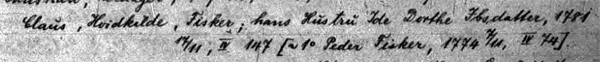 Claus, Hvidkilde, Fisker; hans Hustru Ide Dorthe Ibsdatter, 1781
17/11, IV 147 [~ 1º Peder Fisker, 1774 7/11, IV 74].